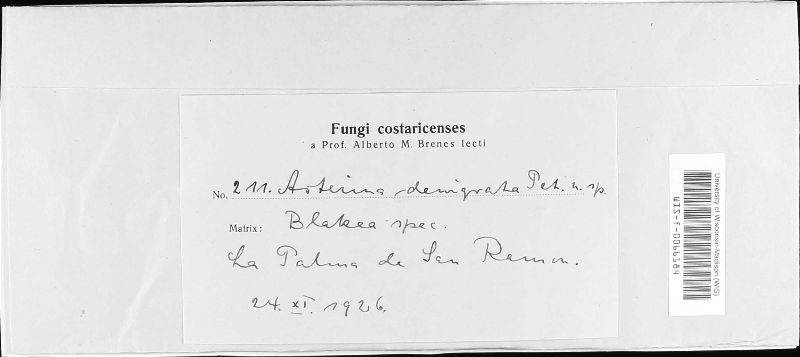 Fungi costaricenses
a Prof. Alberto M. Brenes lecti
No. 211. Asterina denigrata Pet. n. sp.
Matrix: Blakea spec.
La Palma de San Ramon.
24. XI. 1926.
University of Wisconsin-Madison (WIS)